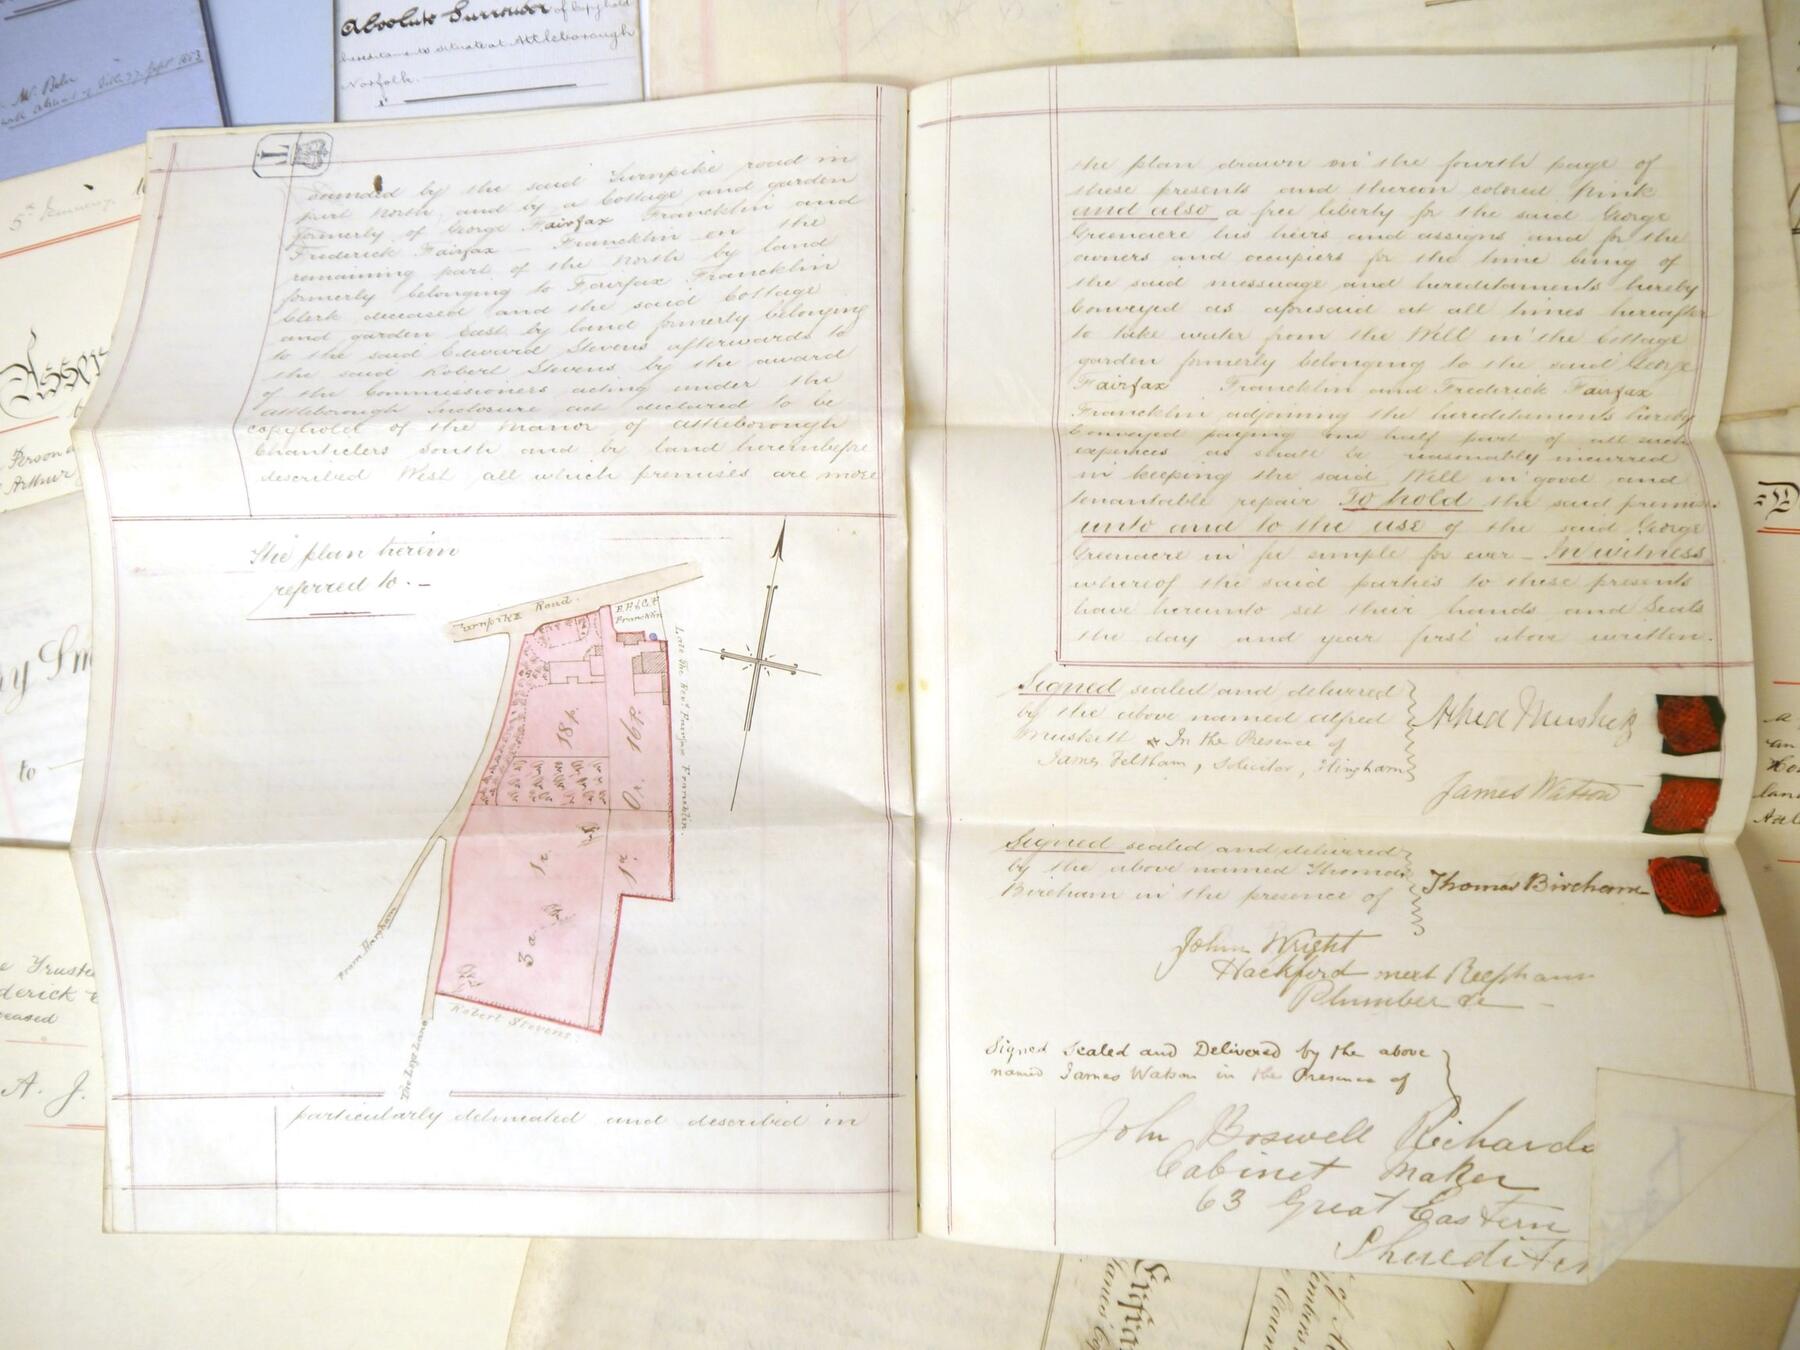 Absolute Surrender of Copyhold
hereditaments situate at Attleborough
Norfolk.
bounded by the said Turnpike road in
part North and by a Cottage and garden
formerly of George Fairfax Francklin and
Frederick Fairfax Francklin on the
remaining part of the North by land
formerly belonging to Fairfax Francklin
Clerk deceased and the said Cottage
and garden East by land formerly belonging
to the said Edward Stevens afterwards to
the said Robert Stevens by the award
of the Commissioners acting under the
Attleborough Inclosure act declared to be
copyhold of the Manor of Attleborough
Chanticlers South and by land hereinbefore
described West all which premises are more
The plan herein
referred to. —
Turnpike Road.
F. F. & G. F.
Francklin
Late The Revd Fairfax Francklin.
18 p.
16 p.
0 r.
1 r.
1 r.
3 a.
From Hargham
The Leys Lane
Robert Stevens.
particularly delineated and described in
the plan drawn on the fourth page of
these presents and thereon colored Pink
and also a free liberty for the said George
Greenacre his heirs and assigns and for the
owners and occupiers for the time being of
the said messuage and hereditaments hereby
Conveyed as aforesaid at all times hereafter
to take water from the Well in the Cottage
garden formerly belonging to the said George
Fairfax Francklin and Frederick Fairfax
Francklin adjoining the hereditaments hereby
Conveyed paying one half part of all such
expences as shall be reasonably incurred
in keeping the said Well in good and
tenantable repair To hold the said premises
unto and to the use of the said George
Greenacre in fee simple for ever — In witness
whereof the said parties to these presents
have hereunto set their hands and Seals
the day and year first above written.
Signed sealed and delivered
by the above named Alfred
Muskett in the Presence of
James Feltham, Solicitor, Hingham
Alfred Muskett
James Watson
Signed sealed and delivered
by the above named Thomas
Bircham in the presence of
Thomas Bircham
John Wright
Hackford next Reepham
Plumber &c —
Signed Sealed and Delivered by the above
named James Watson in the Presence of
John Boswell Richards
Cabinet Maker
63 Great Eastern
Shoreditch